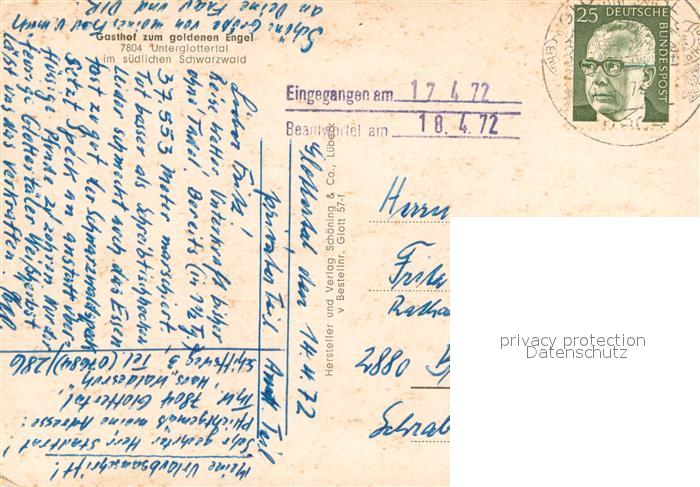 Gasthof zum goldenen Engel
7804 Unterglottertal
im südlichen Schwarzwald
25 DEUTSCHE BUNDESPOST
Eingegangen am 17.4.72
Beantwortet am 18.4.72
Hersteller und Verlag Schöning & Co., Lübeck
v Bestellnr. Glott 57-f
Glottertal den 14.4.72
privater Teil Amtl. Teil
Lieber Fritz!
Reise, Wetter, Unterkunft bisher
eine 1 Tadel. Bereits (in 1½ Tg)
37.553 Meter marschiert.
Tut besser als Schreibtischhocken
Leider schmeckt auch das Essen
fast zu gut. Der Schwarzwaldspeck
setzt Speck an anstatt über-
flüssige Pfunde zu zehren. Nur der
feurige Glottertäler Weißherbst
lässt uns das verkraften.
Schöne Grüße von meiner Frau und mir
an Deine Frau und Dir
Meine Urlaubsanschrift!
Sehr geehrter Herr Stadtrat!
Pflichtgemäß meine Adresse:
7804 Glottertal
Haus "Waldesruh"
3, Tel. (07684) 286
Herrn
Fritz
Ratha
2880
privacy protection
Datenschutz